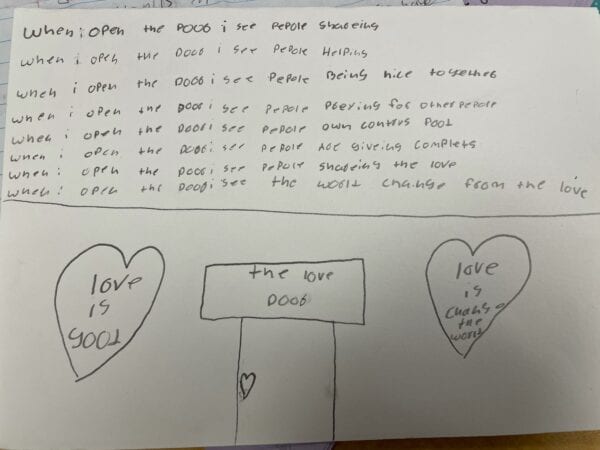 when i open the DOOr i see PePole shareing
when i open the DOOr i see PePole HelPing
when i open the DOOr i see PePole Being nice together
when i open the DOOr i see PePole Preying for other PePole
when i open the DOOr i see PePole own
when i open the DOOr i see PePole Are giveing complets
when i open the DOOr i see PePole shareing the love
when i open the DOOr i see the world change from the love
love
is
good
the love
DOOr
love
is
change
the
world